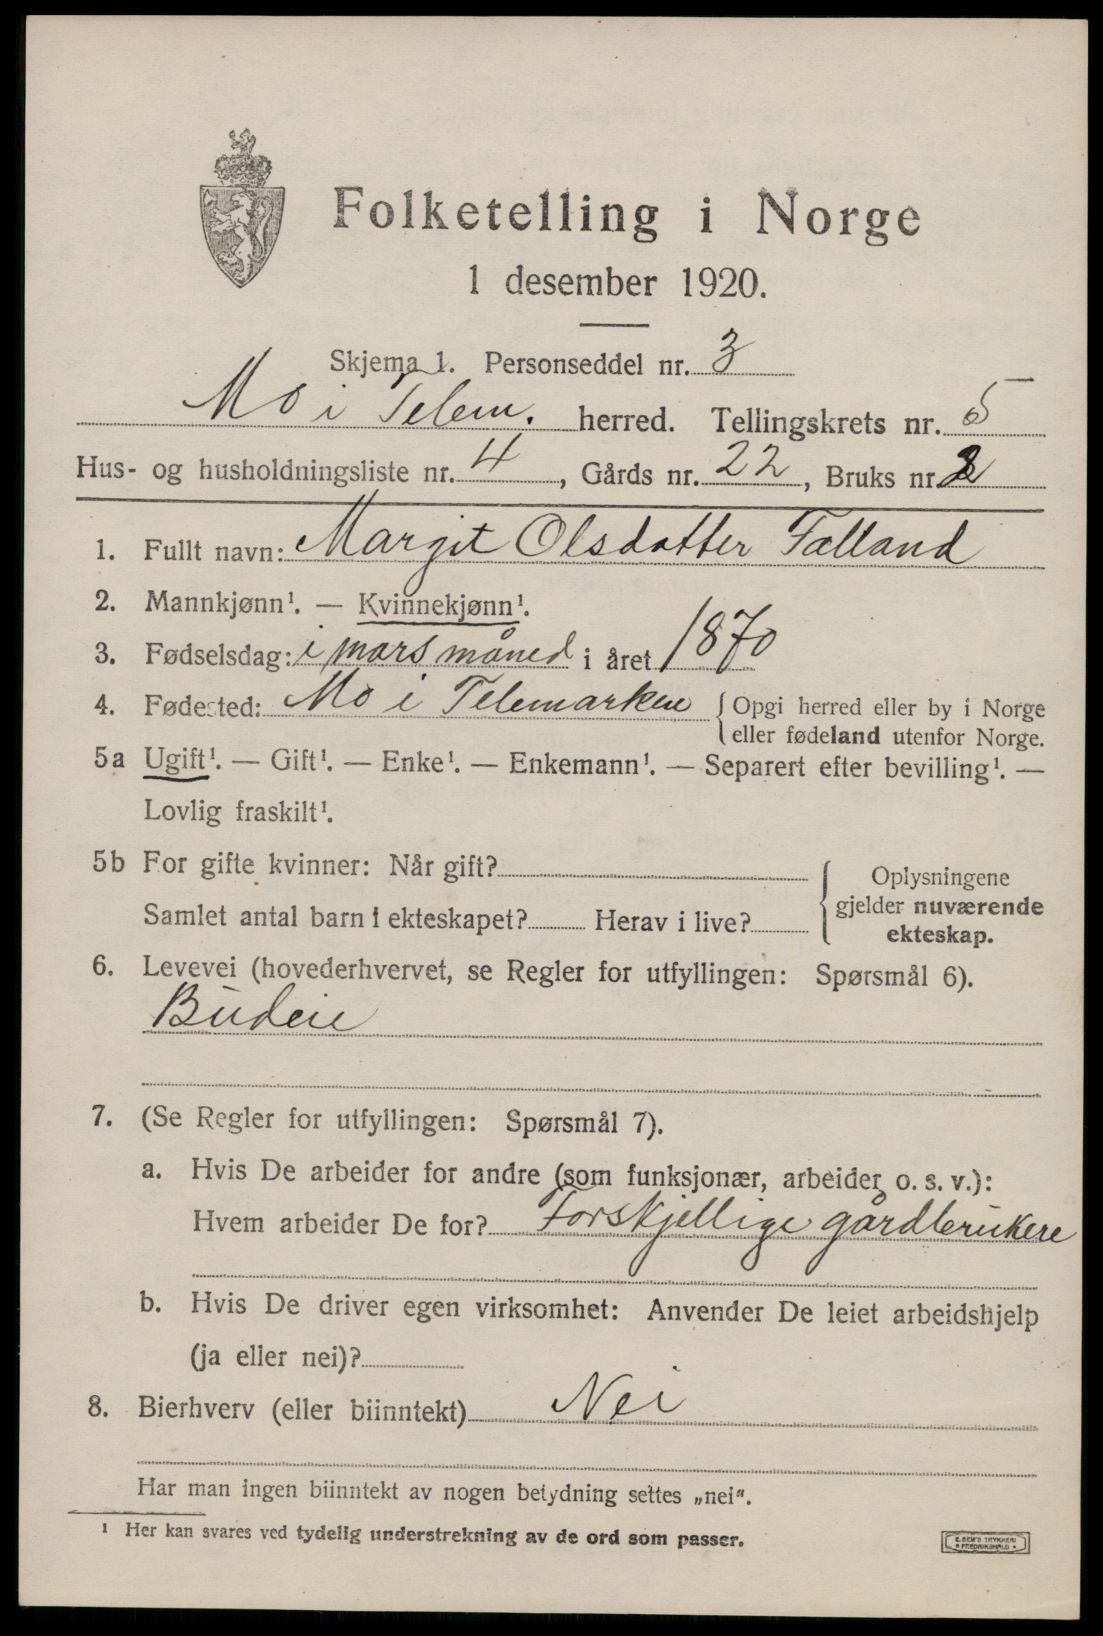 Folketelling i Norge
1 desember 1920.
Skjema 1. Personseddel nr. 3
Mo i Telem. herred. Tellingskrets nr. 5
Hus- og husholdningsliste nr. 4, Gårds nr. 22, Bruks nr. 2
1. Fullt navn: Margit Olsdatter Falland
2. Mannkjønn¹. — Kvinnekjønn¹.
3. Fødselsdag: i mars måned i året 1870
4. Fødested: Mo i Telemarken { Opgi herred eller by i Norge
eller fødeland utenfor Norge.
5a Ugift¹. — Gift¹. — Enke¹. — Enkemann¹. — Separert efter bevilling¹. —
Lovlig fraskilt¹.
5b For gifte kvinner: Når gift?
Samlet antal barn i ekteskapet? Herav i live?
Oplysningene
gjelder nuværende
ekteskap.
6. Levevei (hovederhvervet, se Regler for utfyllingen: Spørsmål 6).
Budeie
7. (Se Regler for utfyllingen: Spørsmål 7).
a. Hvis De arbeider for andre (som funksjonær, arbeider o. s. v.):
Hvem arbeider De for? Forskjellige gårdbrukere
b. Hvis De driver egen virksomhet: Anvender De leiet arbeidshjelp
(ja eller nei)?
8. Bierhverv (eller biinntekt) Nei
Har man ingen biinntekt av nogen betydning settes „nei".
¹ Her kan svares ved tydelig understrekning av de ord som passer.
E. SEM'S TRYKKERI
FREDRIKSHALD